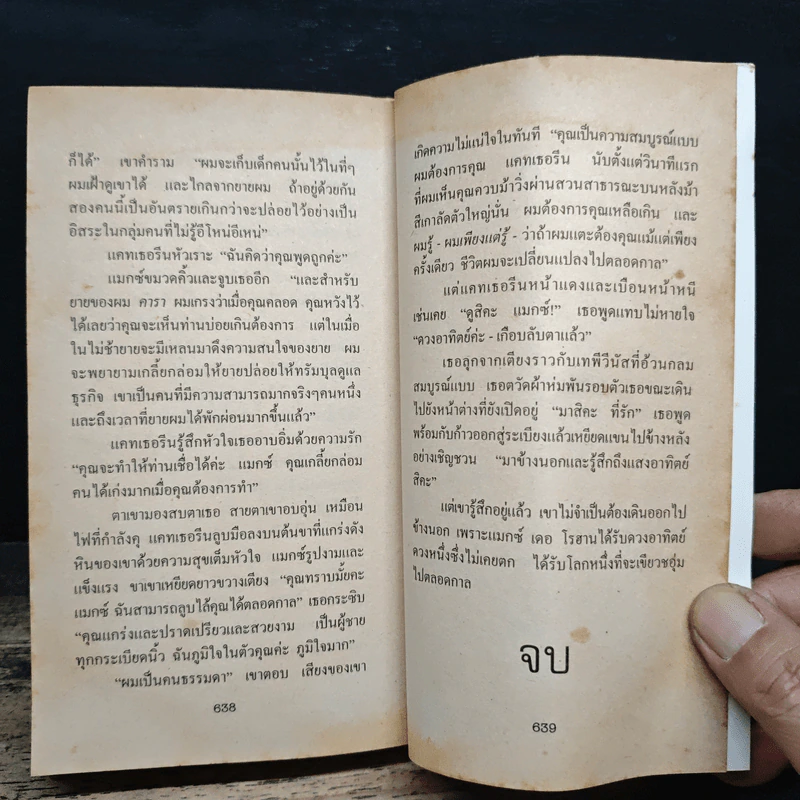 ก็ได้” เขาคำราม “ผมจะเก็บเด็กคนนั้นไว้ในที่ๆ
ผมเฝ้าดูเขาได้ และไกลจากยายผม ถ้าอยู่ด้วยกัน
สองคนนี้เป็นอันตรายเกินกว่าจะปล่อยไว้อย่างเป็น
อิสระในกลุ่มคนที่ไม่รู้อีโหน่อีเหน่”
แคทเธอรีนหัวเราะ “ฉันคิดว่าคุณพูดถูกค่ะ”
แมกซ์ขมวดคิ้วและจูบเธออีก “และสำหรับ
ยายของผม คารา ผมเกรงว่าเมื่อคุณคลอด คุณหวังไว้
ได้เลยว่าคุณจะเห็นท่านบ่อยเกินต้องการ แต่ในเมื่อ
ในไม่ช้ายายจะมีเหลนมาดึงความสนใจของยาย ผม
จะพยายามเกลี้ยกล่อมให้ยายปล่อยให้ทรับบุลดูแล
ธุรกิจ เขาเป็นคนที่มีความสามารถมากจริงๆคนหนึ่ง
และถึงเวลาที่ยายผมได้พักผ่อนมากขึ้นแล้ว”
แคทเธอรีนรู้สึกหัวใจเธออาบอิ่มด้วยความรัก
“คุณจะทำให้ท่านเชื่อได้ค่ะ แมกซ์ คุณเกลี้ยกล่อม
คนได้เก่งมากเมื่อคุณต้องการทำ”
ตาเขามองสบตาเธอ สายตาเขาอบอุ่น เหมือน
ไฟที่กำลังคุ แคทเธอรีนลูบมือลงบนต้นขาที่แกร่งดัง
หินของเขาด้วยความสุขเต็มหัวใจ แมกซ์รูปงามและ
แข็งแรง ขาเขาเหยียดยาวขวางเตียง “คุณทราบมั้ยคะ
แมกซ์ ฉันสามารถลูบไล้คุณได้ตลอดกาล” เธอกระซิบ
“คุณแกร่งและปราดเปรียวและสวยงาม เป็นผู้ชาย
ทุกกระเบียดนิ้ว ฉันภูมิใจในตัวคุณค่ะ ภูมิใจมาก”
“ผมเป็นคนธรรมดา” เขาตอบ เสียงของเขา
638
เกิดความไม่แน่ใจในทันที “คุณเป็นความสมบูรณ์แบบ
ผมต้องการคุณ แคทเธอรีน นับตั้งแต่วินาทีแรก
ที่ผมเห็นคุณควบม้าวิ่งผ่านสวนสาธารณะบนหลังม้า
สีเกาลัดตัวใหญ่นั่น ผมต้องการคุณเหลือเกิน และ
ผมรู้ - ผมเพียงแต่รู้ - ว่าถ้าผมแตะต้องคุณแม้แต่เพียง
ครั้งเดียว ชีวิตผมจะเปลี่ยนแปลงไปตลอดกาล”
แต่แคทเธอรีนหน้าแดงและเบือนหน้าหนี
เช่นเคย “ดูสิคะ แมกซ์!” เธอพูดแทบไม่หายใจ
“ดวงอาทิตย์ค่ะ - เกือบลับตาแล้ว”
เธอลุกจากเตียงราวกับเทพีวีนัสที่อ้วนกลม
สมบูรณ์แบบ เธอตวัดผ้าห่มพันรอบตัวเธอขณะเดิน
ไปยังหน้าต่างที่ยังเปิดอยู่ “มาสิคะ ที่รัก” เธอพูด
พร้อมกับก้าวออกสู่ระเบียงแล้วเหยียดแขนไปข้างหลัง
อย่างเชิญชวน “มาข้างนอกและรู้สึกถึงแสงอาทิตย์
สิคะ”
แต่เขารู้สึกอยู่แล้ว เขาไม่จำเป็นต้องเดินออกไป
ข้างนอก เพราะแมกซ์ เดอ โรฮานได้รับดวงอาทิตย์
ดวงหนึ่งซึ่งไม่เคยตก ได้รับโลกหนึ่งที่จะเขียวชอุ่ม
ไปตลอดกาล
จบ
639